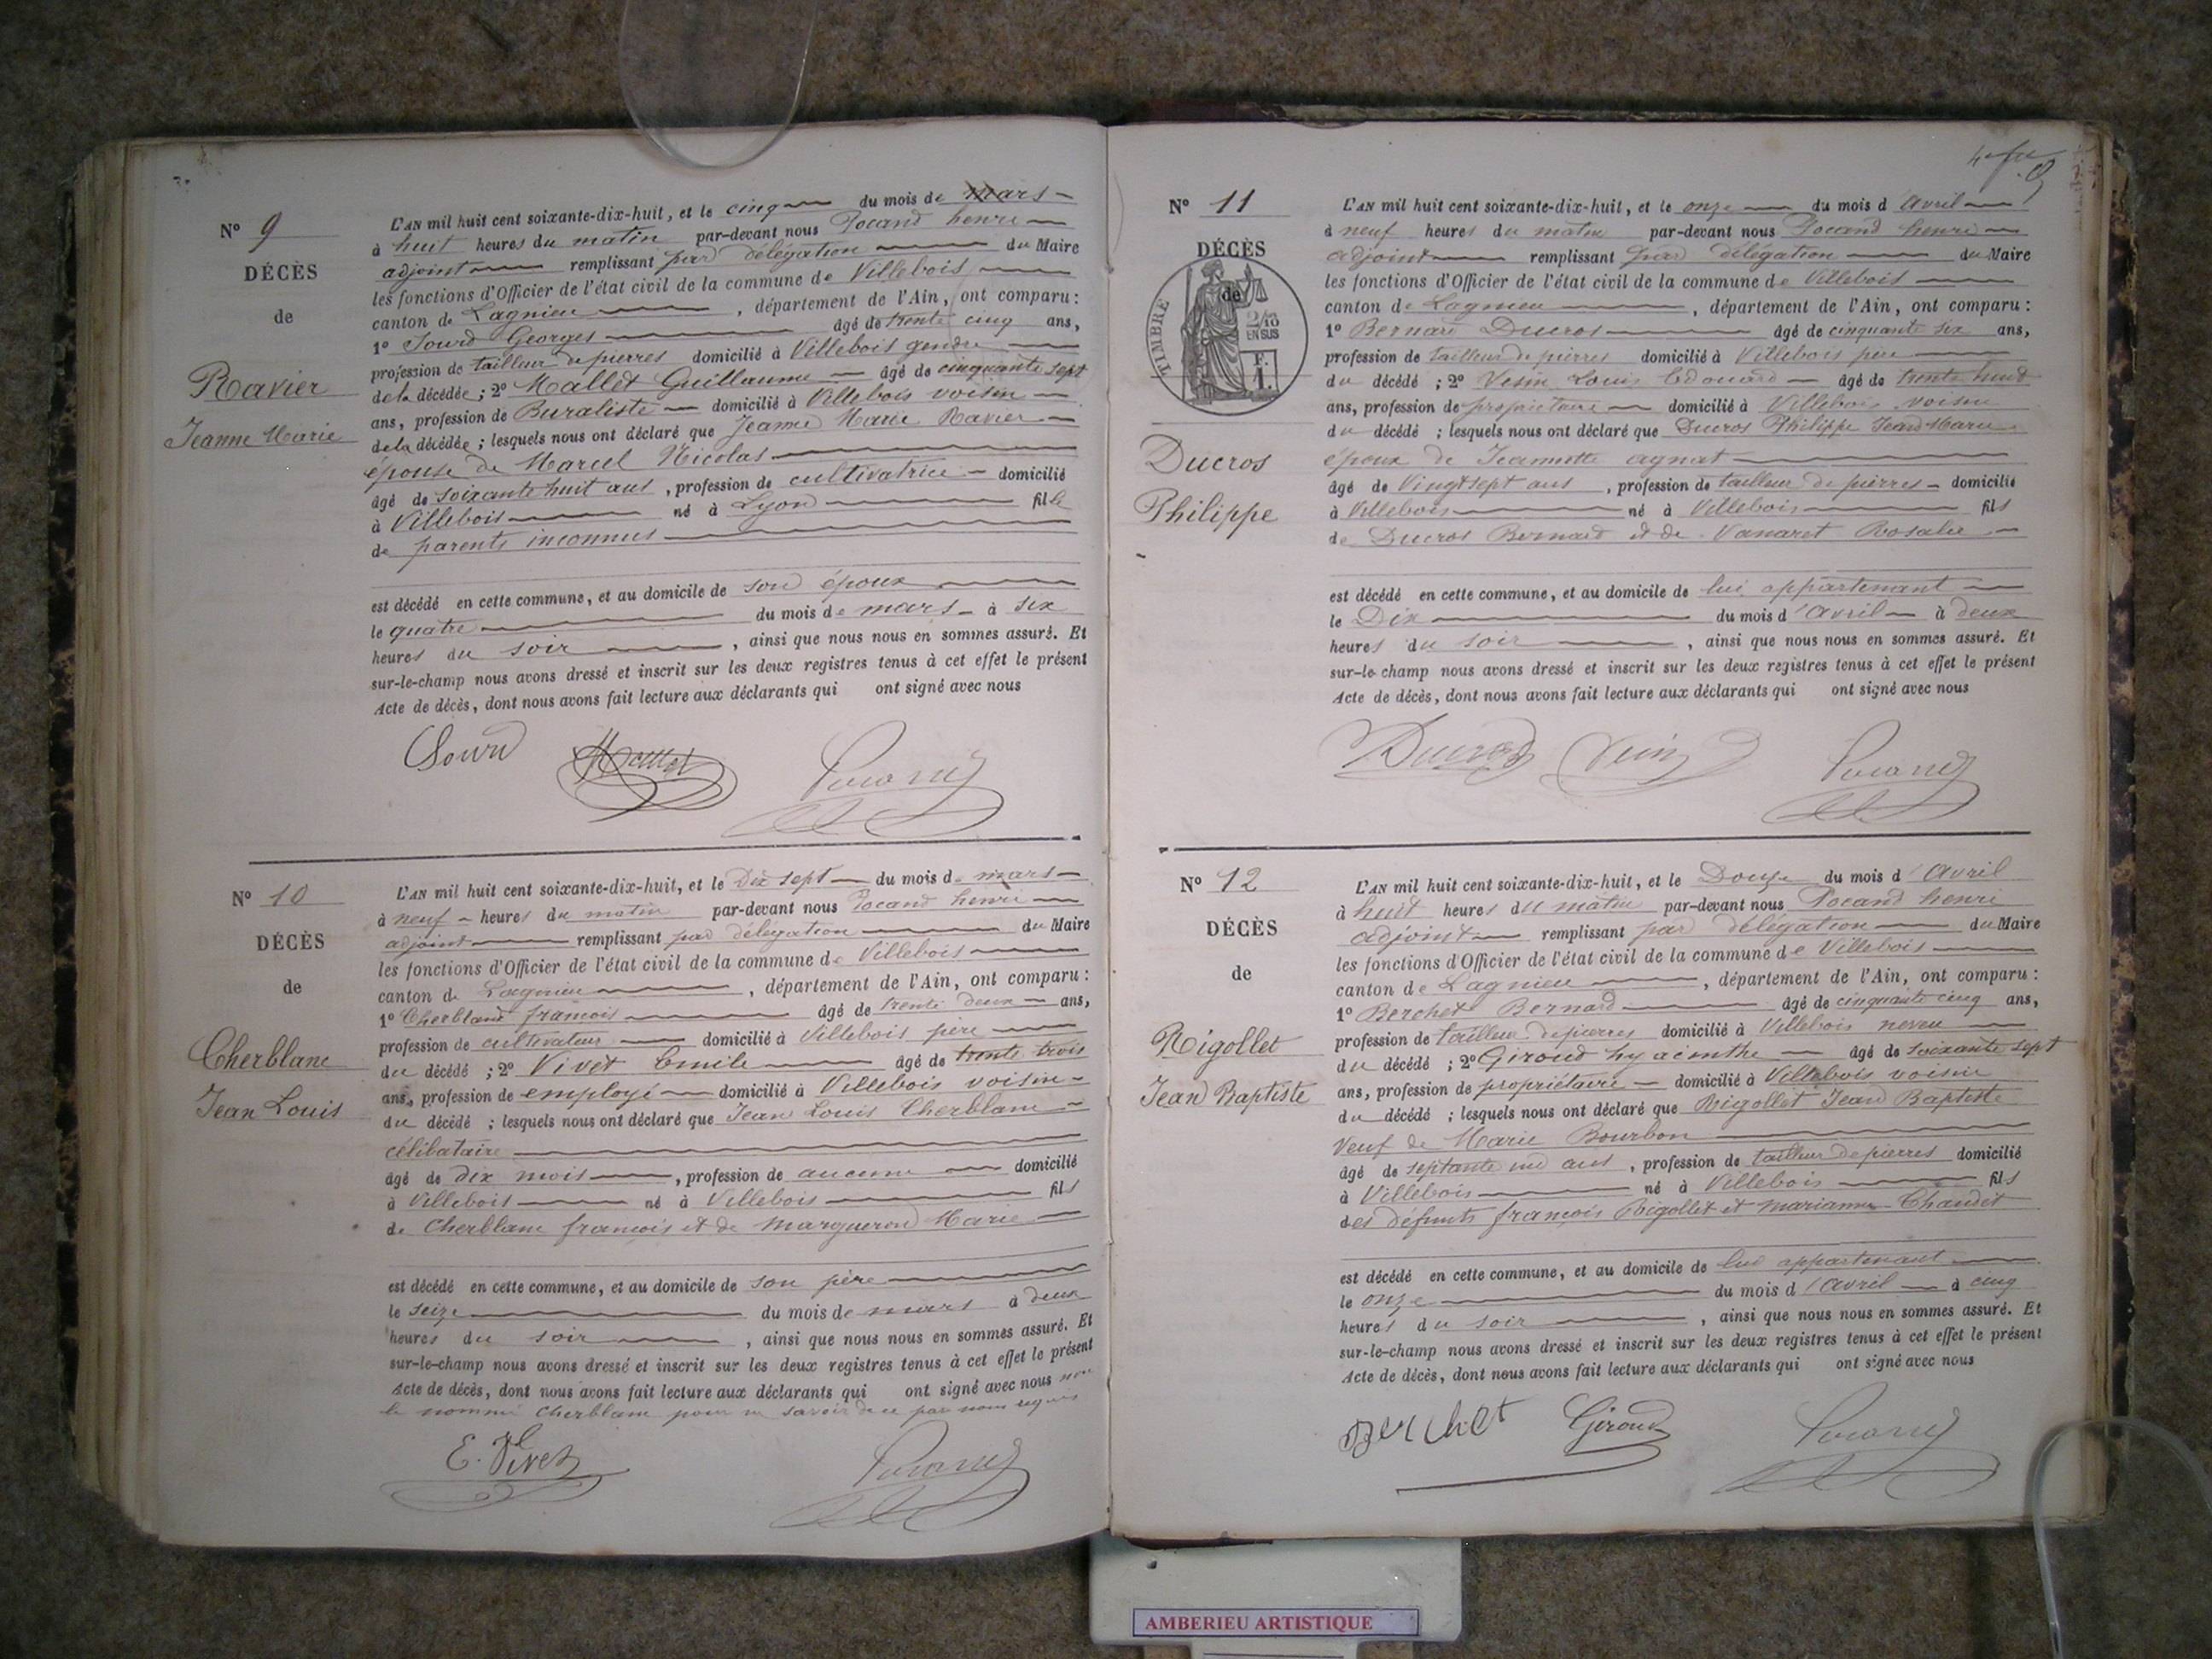 N° 9
DÉCÈS
de
Ravier
Jeanne Marie
L'AN mil huit cent soixante-dix-huit, et le cinq du mois de mars
à huit heures du matin par-devant nous Pocand henri
adjoint remplissant par délégation du Maire
les fonctions d'Officier de l'état civil de la commune de Villebois
canton de Lagnieu, département de l'Ain, ont comparu :
1° Sourd Georges âgé de trente cinq ans,
profession de tailleur de pierres domicilié à Villebois gendre
de la décédée ; 2° Mallet Guillaume âgé de cinquante sept
ans, profession de Buraliste domicilié à Villebois voisin
de la décédée ; lesquels nous ont déclaré que Jeanne Marie Ravier
épouse de Marcel Nicolas
âgé de soixante huit ans, profession de cultivatrice domicilié
à Villebois né à Lyon fille
de parents inconnus
est décédé en cette commune, et au domicile de son époux
le quatre du mois de mars à six
heures du soir, ainsi que nous nous en sommes assuré. Et
sur-le-champ nous avons dressé et inscrit sur les deux registres tenus à cet effet le présent
Acte de décès, dont nous avons fait lecture aux déclarants qui ont signé avec nous
Sourd Mallet Pocand
N° 10
DÉCÈS
de
Cherblanc
Jean Louis
L'AN mil huit cent soixante-dix-huit, et le Dix sept du mois de mars
à neuf heures du matin par-devant nous Pocand henri
adjoint remplissant par délégation du Maire
les fonctions d'Officier de l'état civil de la commune de Villebois
canton de Lagnieu, département de l'Ain, ont comparu :
1° Cherblanc francois âgé de trente deux ans,
profession de cultivateur domicilié à Villebois père
du décédé ; 2° Vivet Emile âgé de trente trois
ans, profession de employé domicilié à Villebois voisin
du décédé ; lesquels nous ont déclaré que Jean Louis Cherblanc
célibataire
âgé de dix mois, profession de aucune domicilié
à Villebois né à Villebois fils
de Cherblanc francois et de Margueron Marie
est décédé en cette commune, et au domicile de son père
le seize du mois de mars à deux
heures du soir, ainsi que nous nous en sommes assuré. Et
sur-le-champ nous avons dressé et inscrit sur les deux registres tenus à cet effet le présent
Acte de décès, dont nous avons fait lecture aux déclarants qui ont signé avec nous non
le nommé Cherblanc pour ne savoir de ce par nous requis
E. Vivet Pocand
N° 11
DÉCÈS
de
TIMBRE
2/10
EN SUS
F.
1.
Ducros
Philippe
L'AN mil huit cent soixante-dix-huit, et le onze du mois d'Avril
à neuf heures du matin par-devant nous Pocand henri
adjoint remplissant par délégation du Maire
les fonctions d'Officier de l'état civil de la commune de Villebois
canton de Lagnieu, département de l'Ain, ont comparu :
1° Bernard Ducros âgé de cinquante six ans,
profession de tailleur de pierres domicilié à Villebois père
du décédé ; 2° Vesin Louis Edouard âgé de trente huit
ans, profession de propriétaire domicilié à Villebois voisin
du décédé ; lesquels nous ont déclaré que Ducros Philippe Jean Marie
époux de Jeannette agnat
âgé de Vingt sept ans, profession de tailleur de pierres domicilié
à Villebois né à Villebois fils
de Ducros Bernard et de Vanaret Rosalie
est décédé en cette commune, et au domicile de lui appartenant
le Dix du mois d'Avril à deux
heures du soir, ainsi que nous nous en sommes assuré. Et
sur-le-champ nous avons dressé et inscrit sur les deux registres tenus à cet effet le présent
Acte de décès, dont nous avons fait lecture aux déclarants qui ont signé avec nous
Ducros Vesin Pocand
N° 12
DÉCÈS
de
Rigollet
Jean Baptiste
L'AN mil huit cent soixante-dix-huit, et le Douze du mois d'Avril
à huit heures du matin par-devant nous Pocand henri
adjoint remplissant par délégation du Maire
les fonctions d'Officier de l'état civil de la commune de Villebois
canton de Lagnieu, département de l'Ain, ont comparu :
1° Berchet Bernard âgé de cinquante cinq ans,
profession de tailleur de pierres domicilié à Villebois neveu
du décédé ; 2° Giroud hyacinthe âgé de soixante sept
ans, profession de propriétaire domicilié à Villebois voisin
du décédé ; lesquels nous ont déclaré que Rigollet Jean Baptiste
veuf de Marie Bourbon
âgé de septante un ans, profession de tailleur de pierres domicilié
à Villebois né à Villebois fils
des défunts françois Rigollet et marianne Chaudet
est décédé en cette commune, et au domicile de lui appartenant
le onze du mois d'avril à cinq
heures du soir, ainsi que nous nous en sommes assuré. Et
sur-le-champ nous avons dressé et inscrit sur les deux registres tenus à cet effet le présent
Acte de décès, dont nous avons fait lecture aux déclarants qui ont signé avec nous
Berchet Giroud Pocand
AMBERIEU ARTISTIQUE